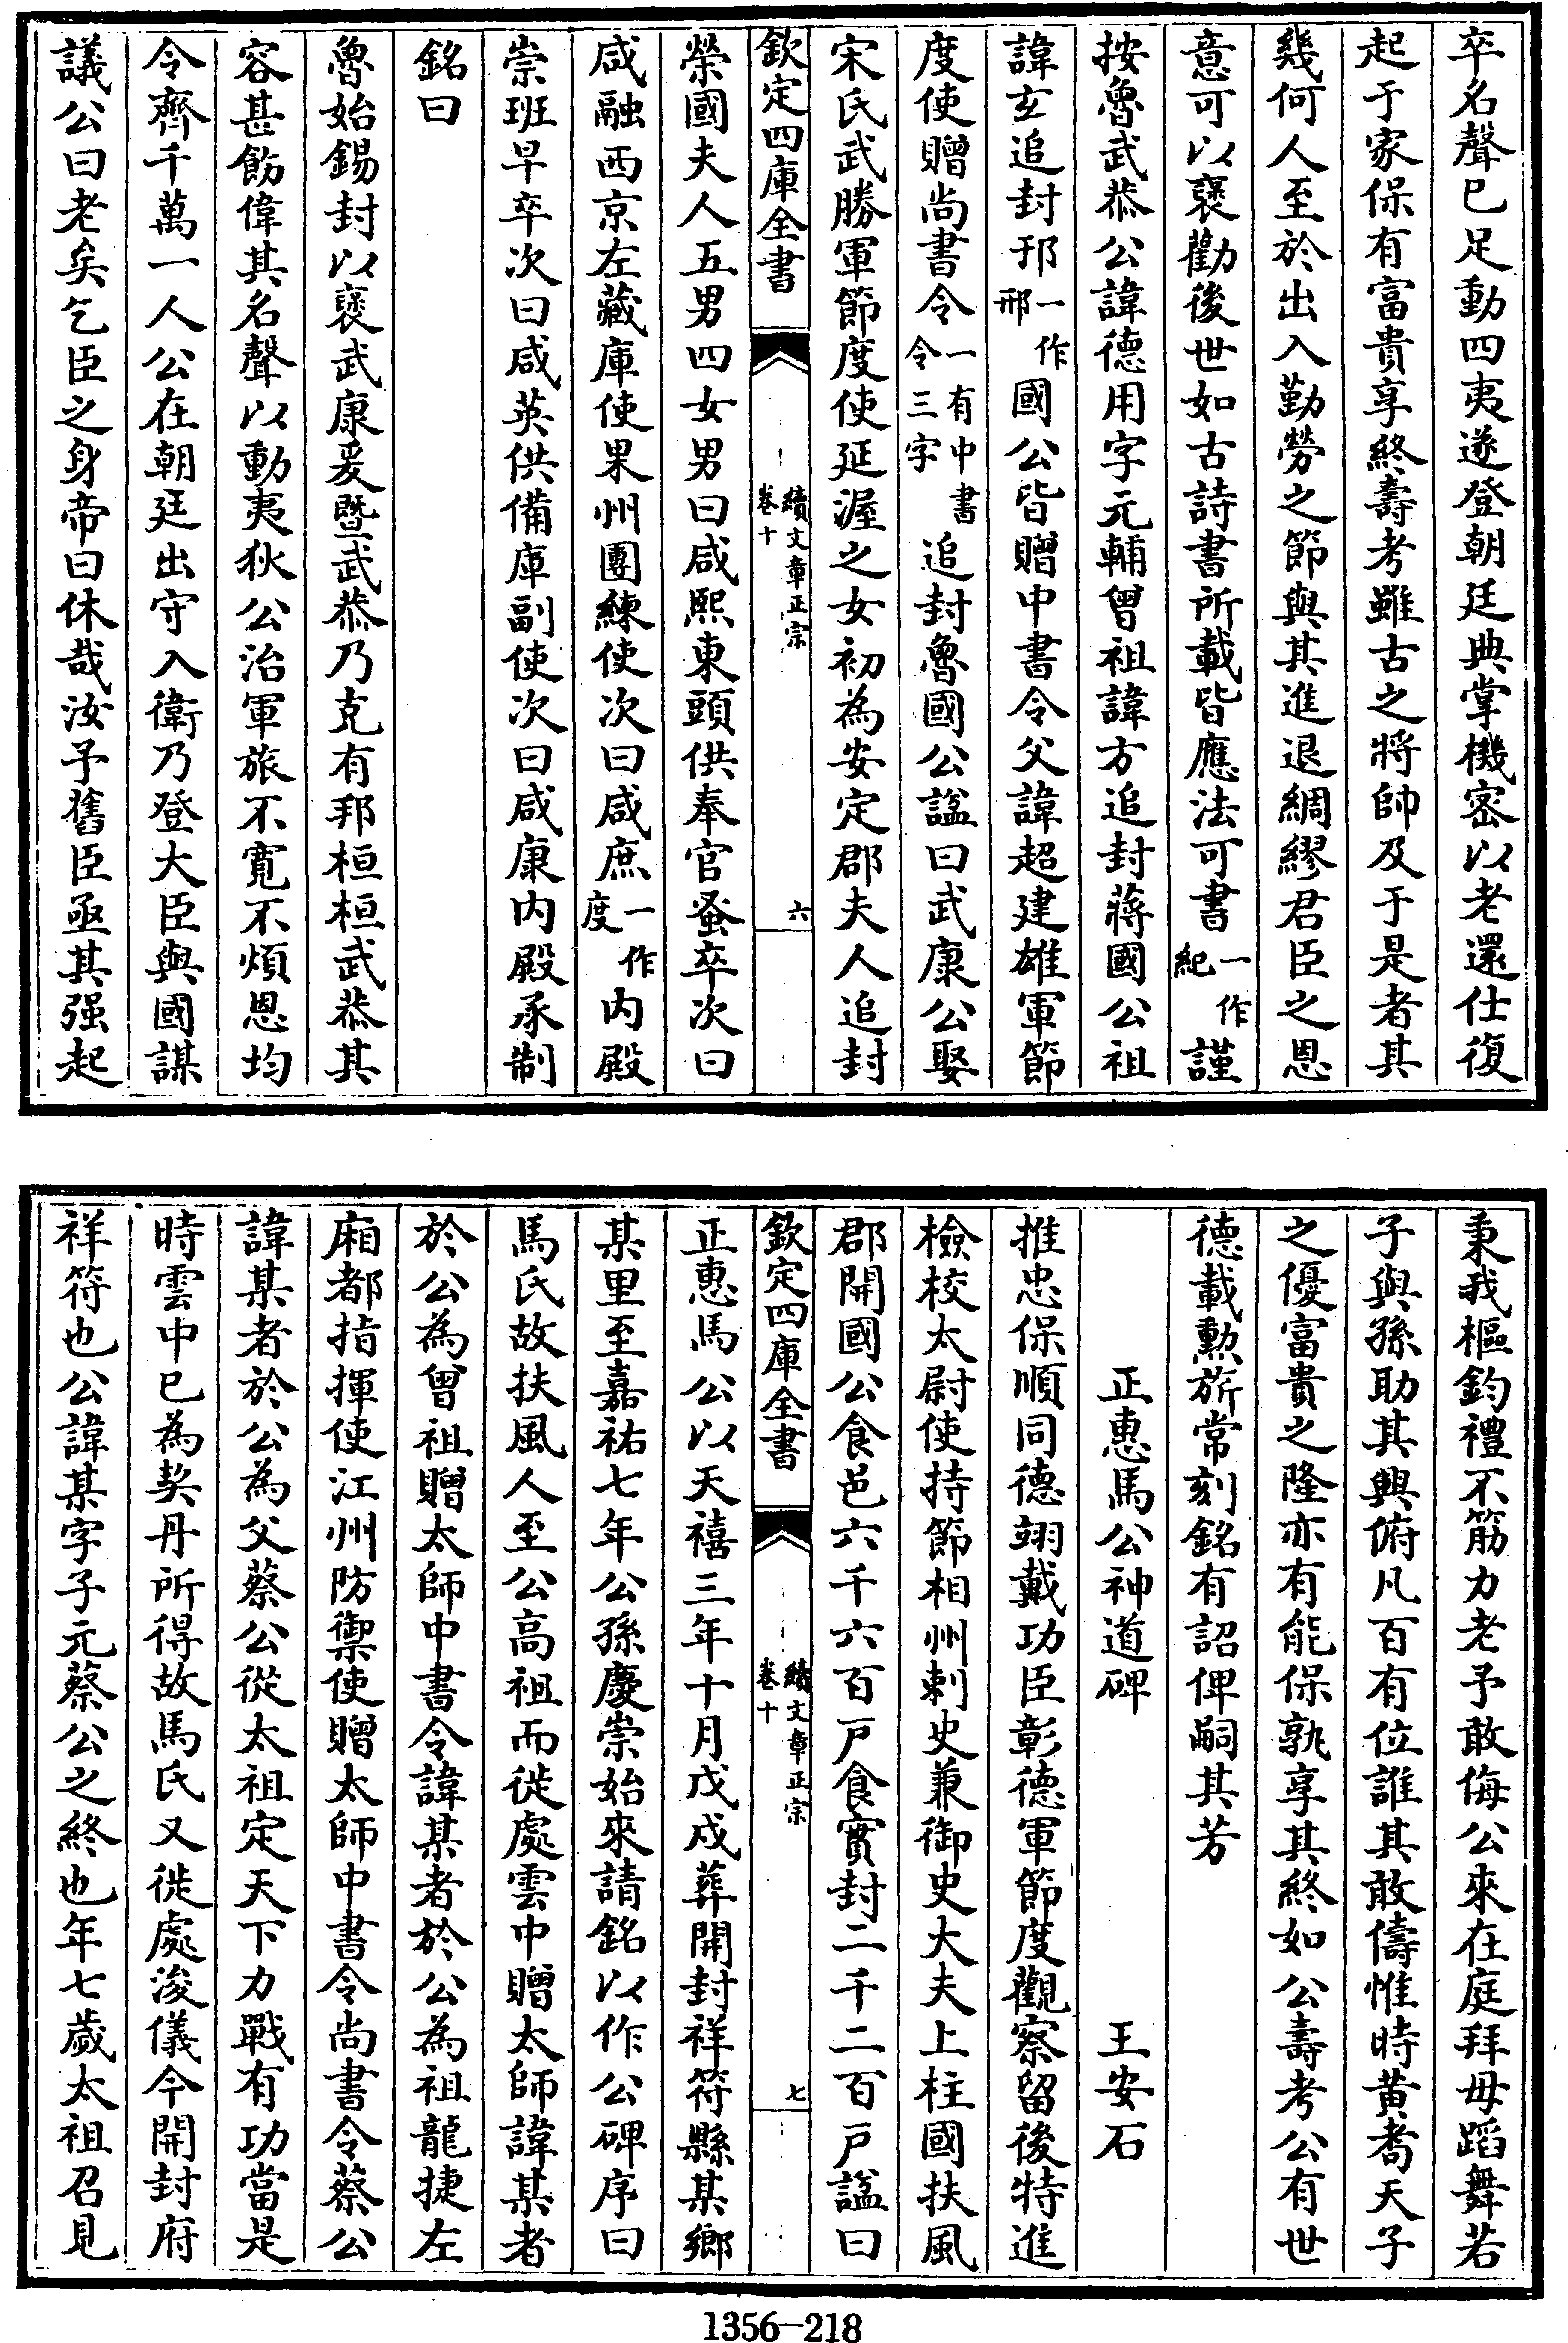 卒名聲已足動四夷遂登朝廷典掌機密以老還仕復
起于家保有富貴享終壽考雖古之將帥及于是者其
幾何人至於出入勤勞之節與其進退綢繆君臣之恩
意可以襃勸後世如古詩書所載皆應法可書一作紀謹
按魯武恭公諱德用字元輔曾祖諱方追封蔣國公祖
諱玄追封邘一作邢國公皆贈中書令父諱超建雄軍節
度使贈尚書令一有中書令三字追封魯國公諡曰武康公娶
宋氏武勝軍節度使延渥之女初為安定郡夫人追封
欽定四庫全書 續文章正宗 卷十 六
榮國夫人五男四女男曰咸熙東頭供奉官蚤卒次曰
咸融西京左藏庫使果州團練使次曰咸庶一作度内殿
崇班早卒次曰咸英供備庫副使次曰咸康内殿承制
銘曰
魯始錫封以襃武康爰暨武恭乃克有邦桓桓武恭其
容甚飭偉其名聲以動夷狄公治軍旅不寛不煩恩均
令齊千萬一人公在朝廷出守入衛乃登大臣與國謀
議公曰老矣乞臣之身帝曰休哉汝予舊臣亟其强起
秉我樞鈞禮不筋力老予敢侮公來在庭拜毋蹈舞若
子與孫助其興俯凡百有位誰其敢儔惟時黄耇天子
之優富貴之隆亦有能保孰享其終如公壽考公有世
德載勲旂常刻銘有詔俾嗣其芳
正惠馬公神道碑 王安石
推忠保順同德翊戴功臣彰德軍節度觀察留後特進
檢校太尉使持節相州刺史兼御史大夫上柱國扶風
郡開國公食邑六千六百户食實封二千二百户諡曰
欽定四庫全書 續文章正宗 卷十 七
正惠馬公以天禧三年十月戊戌葬開封祥符縣某鄉
某里至嘉祐七年公孫慶崇始來請銘以作公碑序曰
馬氏故扶風人至公高祖而徙處雲中贈太師諱某者
於公為曾祖贈太師中書令諱某者於公為祖龍捷左
廂都指揮使江州防禦使贈太師中書令尚書令蔡公
諱某者於公為父蔡公從太祖定天下力戰有功當是
時雲中已為契丹所得故馬氏又徙處浚儀今開封府
祥符也公諱某字子元蔡公之終也年七歲太祖召見
1356—218